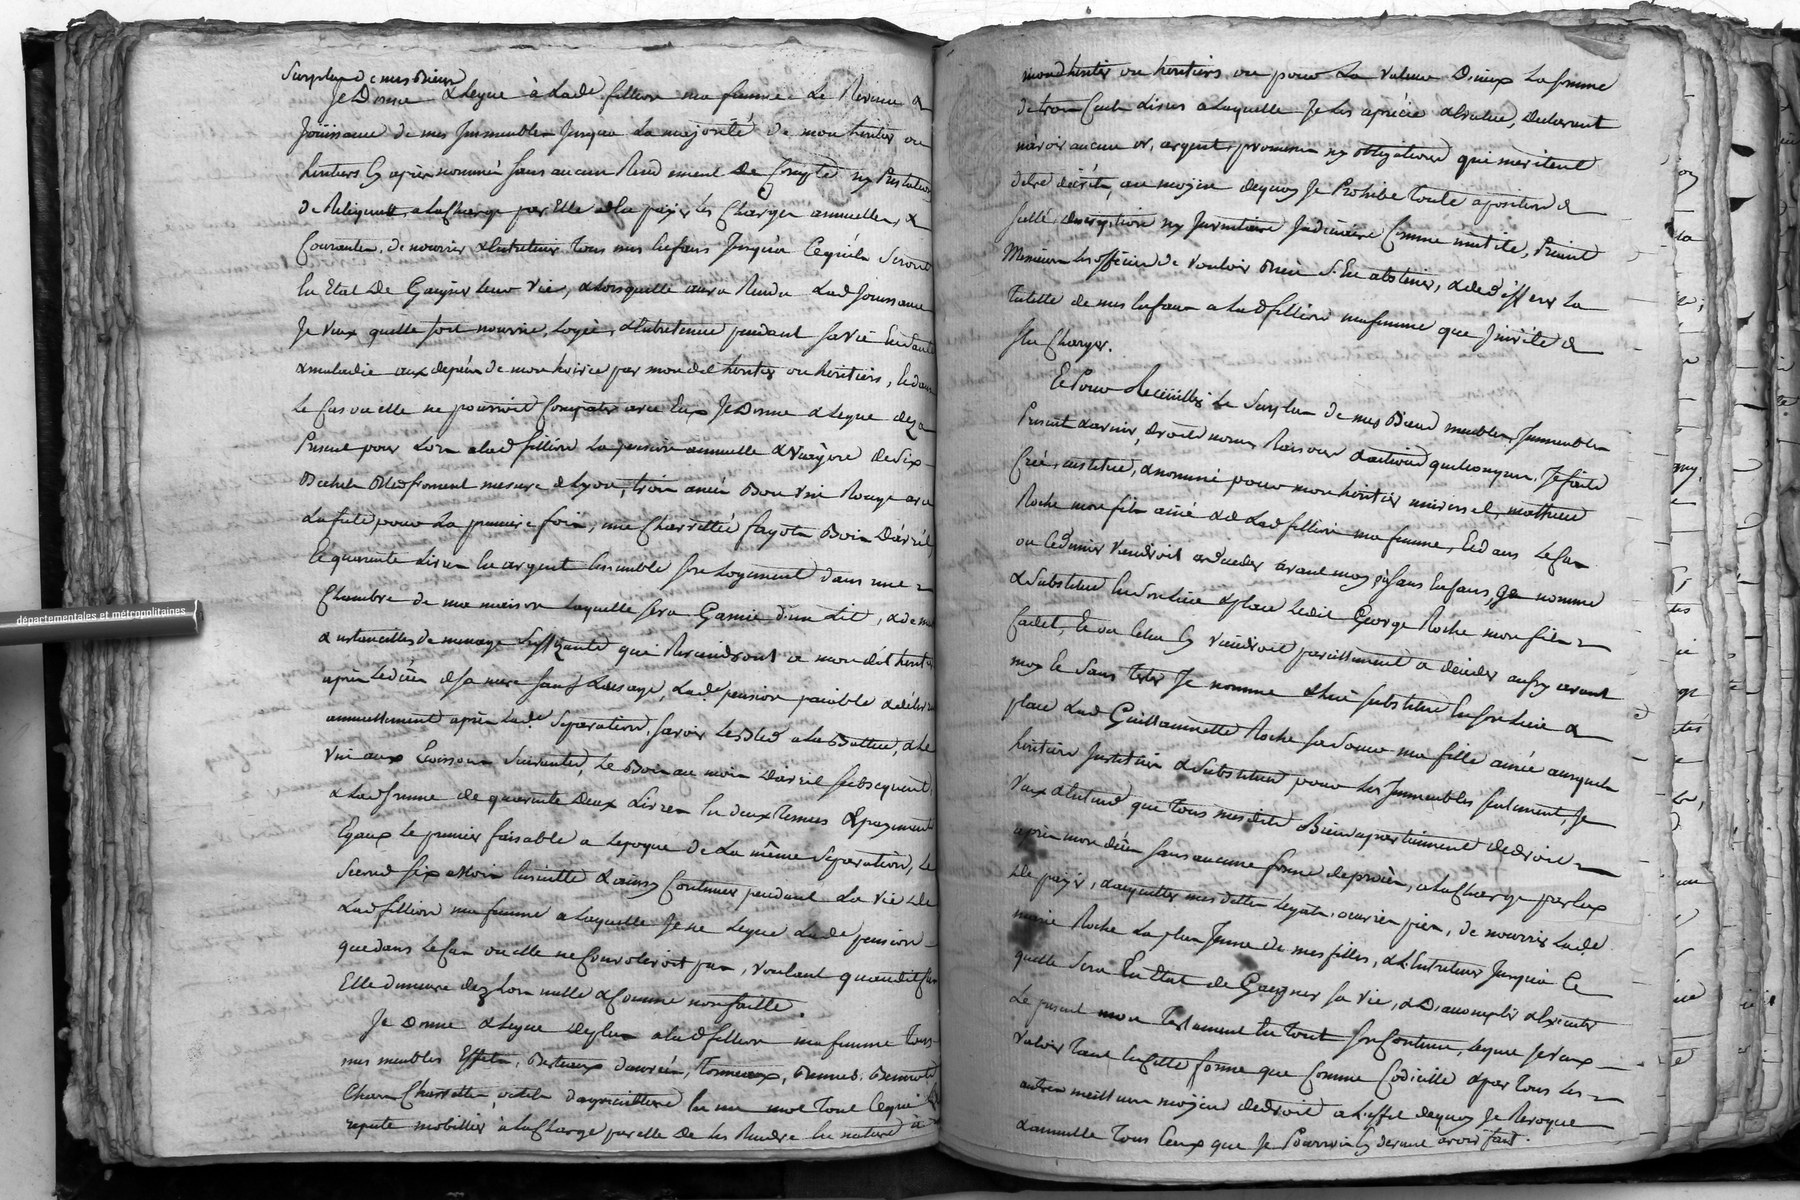 Surplus de mes Biens
Je Donne & Legue à Lade fillion ma femme Le Revenu &
Joüissance de mes Jmmeubles Jusqua La majorité de mon heritier ou
heritiers Cy après nommés sans aucun Rendement De Compte ny Prestation
de Reliquatt, a La Charge par Elle de La payer Les Charges annuelles &
Courantes, de nourrir & Entretenir Tous mes Enfans Jusqu'a Cequ'ils Seront
En Etat De Gagner Leur Vie, & Lorsquelle aura Rendu Lad Jouissance
Je Veux quelle soit nourrie, Logée, & Entretenue pendant sa vie En santé
& maladie aux depens de mon hoirie par mondit heritier ou heritiers, Et dans
Le Cas ou elle ne pourroit Compatir avec Eux Je Donne & Legue deza
Present pour Lors a lad fillion La pension annuelle & Viagere de Six
Bichets Bled froment mesure de Lyon, trois anées Bon vin Rouge avec
La futé pour La premiere fois, une Charrettée fagots Bois
Et quarante Livres En argent Ensemble son Logement dans une
Chambre de ma maison Laquelle sera Garnie d'un Lit, &
& ustancilles de menage Suffizante que Reviendront a mondit heritier
après Le décès de sa mere sauf L'ussage, Lade pension paiable & délivrée
annuellement après Lade Separation, Savoir Les Bled a La Batture, & Le
Vin aux Ecoisson Suivantes, Le Bois au mois Subsequent,
& Lad somme de quarante Deux Livres En deux Termes & payements
Egaux Le premier faisable a Lepoque de La même Separation, Le
Second six Mois Ensuitte & ainsy Continuer pendant La vie de
Lad fillion ma femme a Laquelle Je ne Legue Lade pension
que dans Le Cas ou elle ne Convoleroit pas, voulant quaudit Cas
Elle demeure dez Lors nulle & Comme non faitte.
Je Donne & Legue Deplus a Lad fillion ma femme Tous
mes meubles Effets, Bestiaux danrées, Tonneaux, Bennes,
Chars Charrettes, outils d'agriculture En un mot Tout Cequi Est
reputé mobillier a La Charge par elle De Les Rendre En nature à
mond heritier ou heritiers ou pour La valeur D'eux La somme
de trois Cents Livres a Laquelle Je Les apretie & Evalue, Declarant
n'avoir aucun or, argent, promesses ny obligations qui meritent
detre décrits, au moÿen dequoy Je Prohibe Toute aposition de
scellé description ny Jnventaire Judiciaire Comme inutile, Priant
Messieurs Les officiers de vouloir Bien S'En abstenir, & deD'efferer La
Tutelle de mes Enfans a Lad fillion ma femme que J'invite de
s'En Charger.
Et Pour Recüeillir Le Surplus de mes Biens meubles, Jmmeubles
Present & avenir, droits noms Raisons & actions quelconques, Je fais
Créé, institue, & nomme pour mon heritier universel, Mathieu
Roche mon fils ainé & de Lad fillion ma femme, Et dans Le Cas
ou Cedernier Viendroit a deceder avant moy & sans Enfans, Je nomme
& Substitue En son Lieu & place Ledit George Roche mon fils
Cadet, Et ou Celui Cy Viendroit pareillement a deceder aussy avant
moy Et Sans Tester Je nomme & Lui substitue En son Lieu &
place Lad Guillaumette Roche sa soeur ma fille ainée auxquels
heritiers Jnstitués & Substitués pour Les Jmmeubles seulement, Je
Veux & Entend que tous mesdits Biens apartiennent de droit
après mon décès sans aucune forme deprocès, a La Charge par Eux
de payer, & acquitter mes dettes Legats, oeuvres pies, de nourrir Lade
marie Roche La plus Jeune de mes filles, & L'Entretenir Jusqu'a Ce
quelle Sera En Etat de Gaigner sa vie, & D'acomplir & Executer
Le present mon Testament En Tout son Contenu, Lequel Je Veux
Valoir Tant En Cette forme que Comme Codicille & par Tous Les
autres meilleurs moÿens dedroit a L'effet dequoy Je Revoque
& annulle Tous Ceux que Je Pourrois Cy devant avoir fait.
départementales et métropolitaines